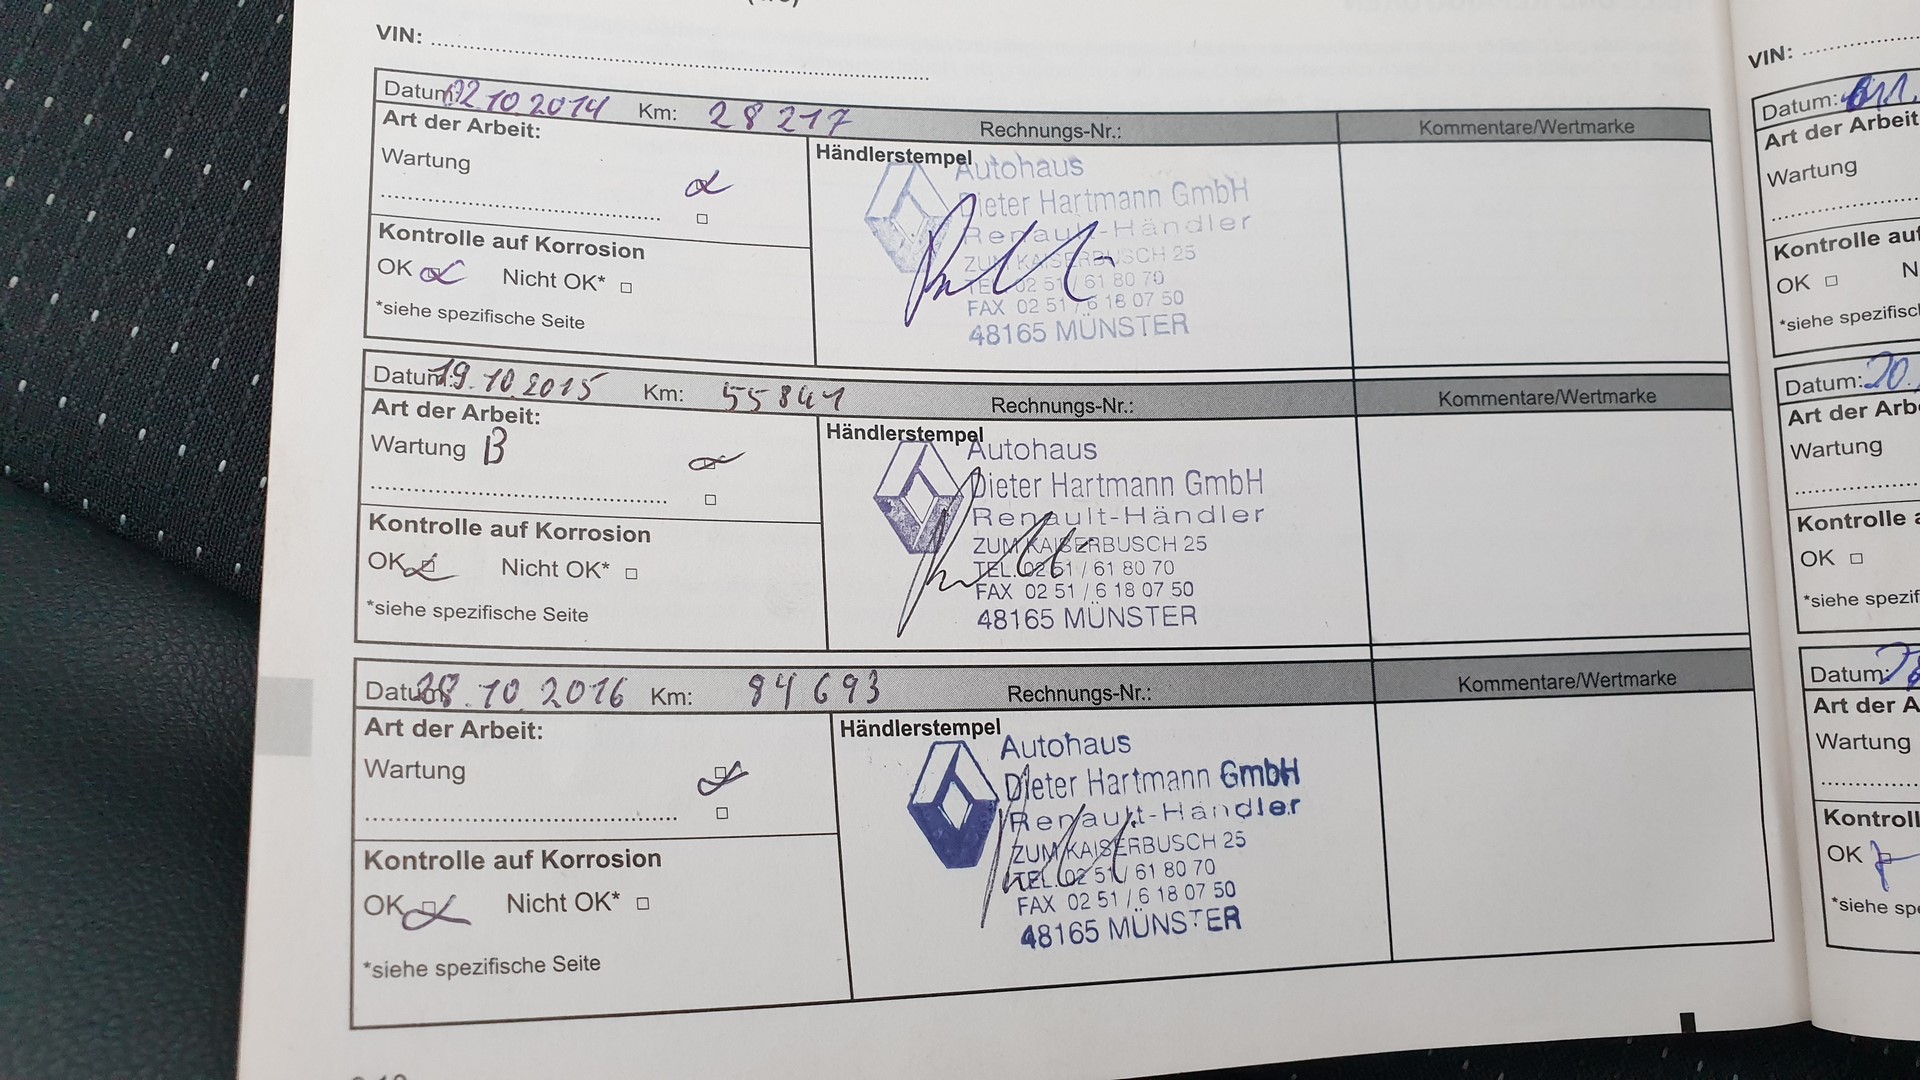 VIN:
Datum: 02.10.2014 Km: 28 217 Rechnungs-Nr.: Kommentare/Wertmarke
Art der Arbeit:
Wartung
Kontrolle auf Korrosion
OK Nicht OK*
*siehe spezifische Seite
Händlerstempel
Autohaus
Dieter Hartmann GmbH
Renault-Händler
ZUM KAISERBUSCH 25
TEL. 02 51 / 61 80 70
FAX 02 51 / 6 18 07 50
48165 MÜNSTER
Datum: 19.10.2015 Km: 55841 Rechnungs-Nr.: Kommentare/Wertmarke
Art der Arbeit:
Wartung B
Kontrolle auf Korrosion
OK Nicht OK*
*siehe spezifische Seite
Händlerstempel
Autohaus
Dieter Hartmann GmbH
Renault-Händler
ZUM KAISERBUSCH 25
TEL. 02 51 / 61 80 70
FAX 02 51 / 6 18 07 50
48165 MÜNSTER
Datum: 28.10.2016 Km: 84 693 Rechnungs-Nr.: Kommentare/Wertmarke
Art der Arbeit:
Wartung
Kontrolle auf Korrosion
OK Nicht OK*
*siehe spezifische Seite
Händlerstempel
Autohaus
Dieter Hartmann GmbH
Renault-Händler
ZUM KAISERBUSCH 25
TEL. 02 51 / 61 80 70
FAX 02 51 / 6 18 07 50
48165 MÜNSTER
VIN:
Datum:
Art der Arbeit
Wartung
Kontrolle auf
OK
*siehe spezifisc
Datum: 20.
Art der Arb
Wartung
Kontrolle a
OK
*siehe spezif
Datum:
Art der A
Wartung
Kontroll
OK
*siehe spe